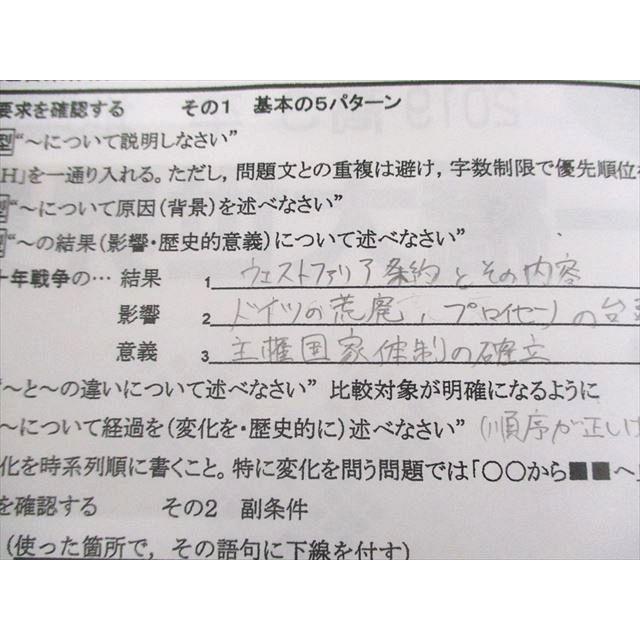 要求を確認する その1 基本の5パターン
型"～について説明しなさい"
H」を一通り入れる。ただし,問題文との重複は避け,字数制限で優先順位を
型"～について原因(背景)を述べなさい"
型"～の結果(影響・歴史的意義)について述べなさい"
十年戦争の… 結果 1 ウェストファリア条約とその内容
影響 2 ドイツの荒廃,プロイセンの台
意義 3 主権国家体制の確立
"～と～の違いについて述べなさい" 比較対象が明確になるように
～について経過を(変化を・歴史的に)述べなさい" (順序が正しい
化を時系列順に書くこと。特に変化を問う問題では「○○から■■へ」
を確認する その2 副条件
(使った箇所で,その語句に下線を付す)